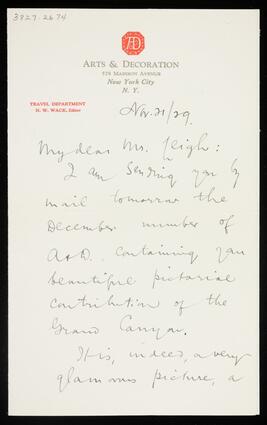 3827.2674
AD
ARTS & DECORATION
578 MADISON AVENUE
New York City
N. Y.
TRAVEL DEPARTMENT
H. W. WACK, Editor
Nov. 21/29.
My dear Mr. Leigh:
I am sending you by
mail tomorrow the
December number of
A&D. containing your
beautiful pictorial
contribution of the
Grand Canyon.
It is, indeed, a very
glamorous picture, a